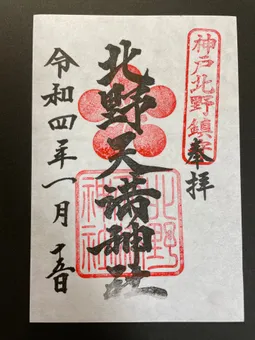 神戸北野鎮守
奉拝
北野天満神社
北野天満神社
令和四年一月十五日